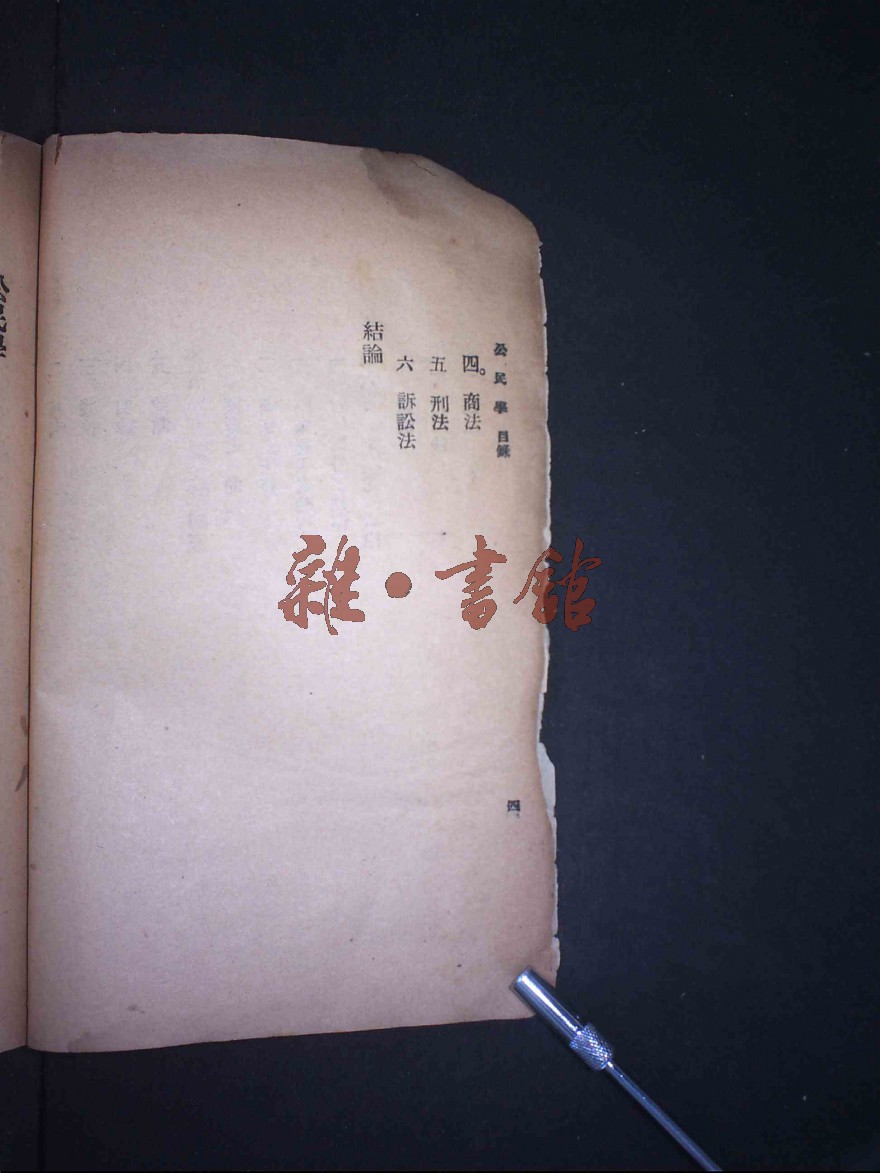 公民學 目錄
四。商法
五 刑法
六 訴訟法
結論
四
雜·書館
公民學